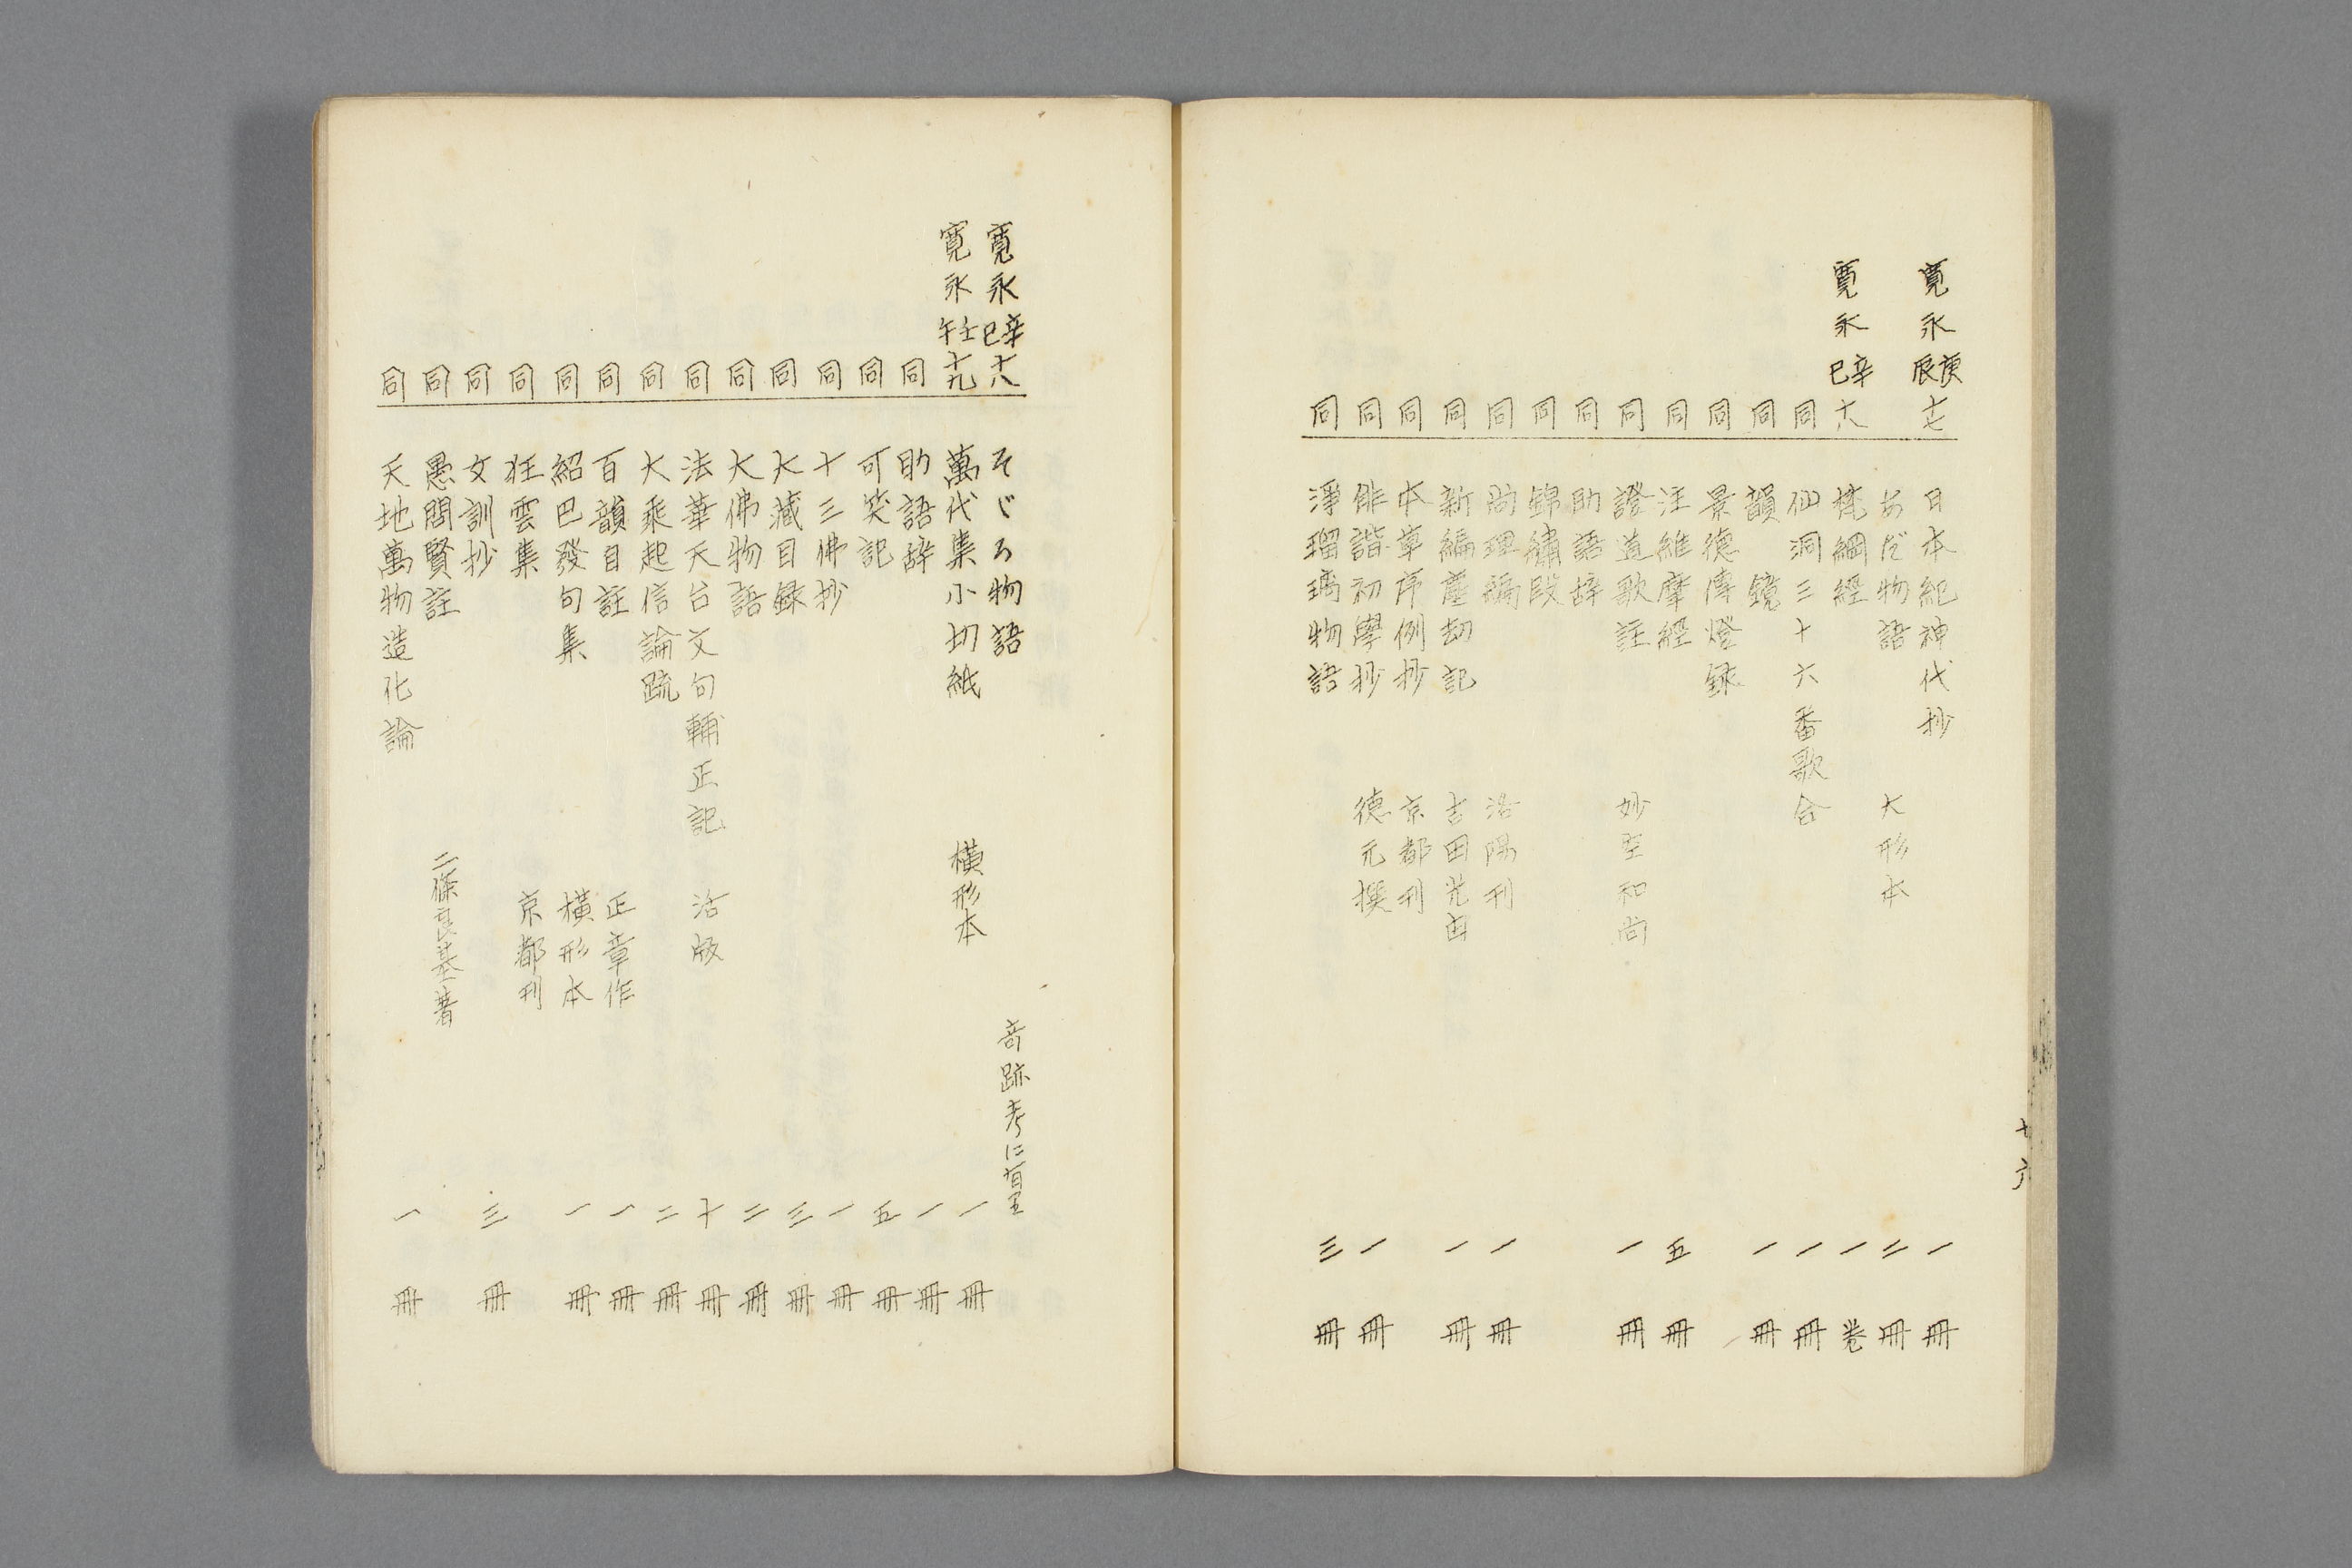 寛永庚辰十七 日本紀神代抄 一冊
あだ物語 大形本 二冊
寛永辛巳十八 梵網經 一卷
同 仙洞三十六番歌合 一冊
同 韻鏡 一冊
同 景德傳燈録
同 注維摩經 五冊
同 證道歌註 妙空和尚 一冊
同 助語辞
同 錦繡段
同 尚理編 洛陽刊 一冊
同 新編塵劫記 吉田光由 一冊
同 本草序例抄 京都刊
同 俳諧初學抄 德元撰 一冊
同 淨瑠璃物語 三冊
十六
寛永辛巳十八 そゞろ物語 奇跡考に有 
寛永壬午十九 萬代集小切紙 横形本 一冊
同 助語辞 一冊
同 可笑記 五冊
同 十三佛抄 一冊
同 大藏目録 三冊
同 大佛物語 二冊
同 法華天台文句輔正記 活版 十冊
同 大乘起信論疏 二冊
同 百韻自註 正章作 一冊
同 紹巴發句集 横形本 一冊
同 狂雲集 京都刊
同 文訓抄 三冊
同 愚問賢註 二條良基著
同 天地萬物造化論 一冊